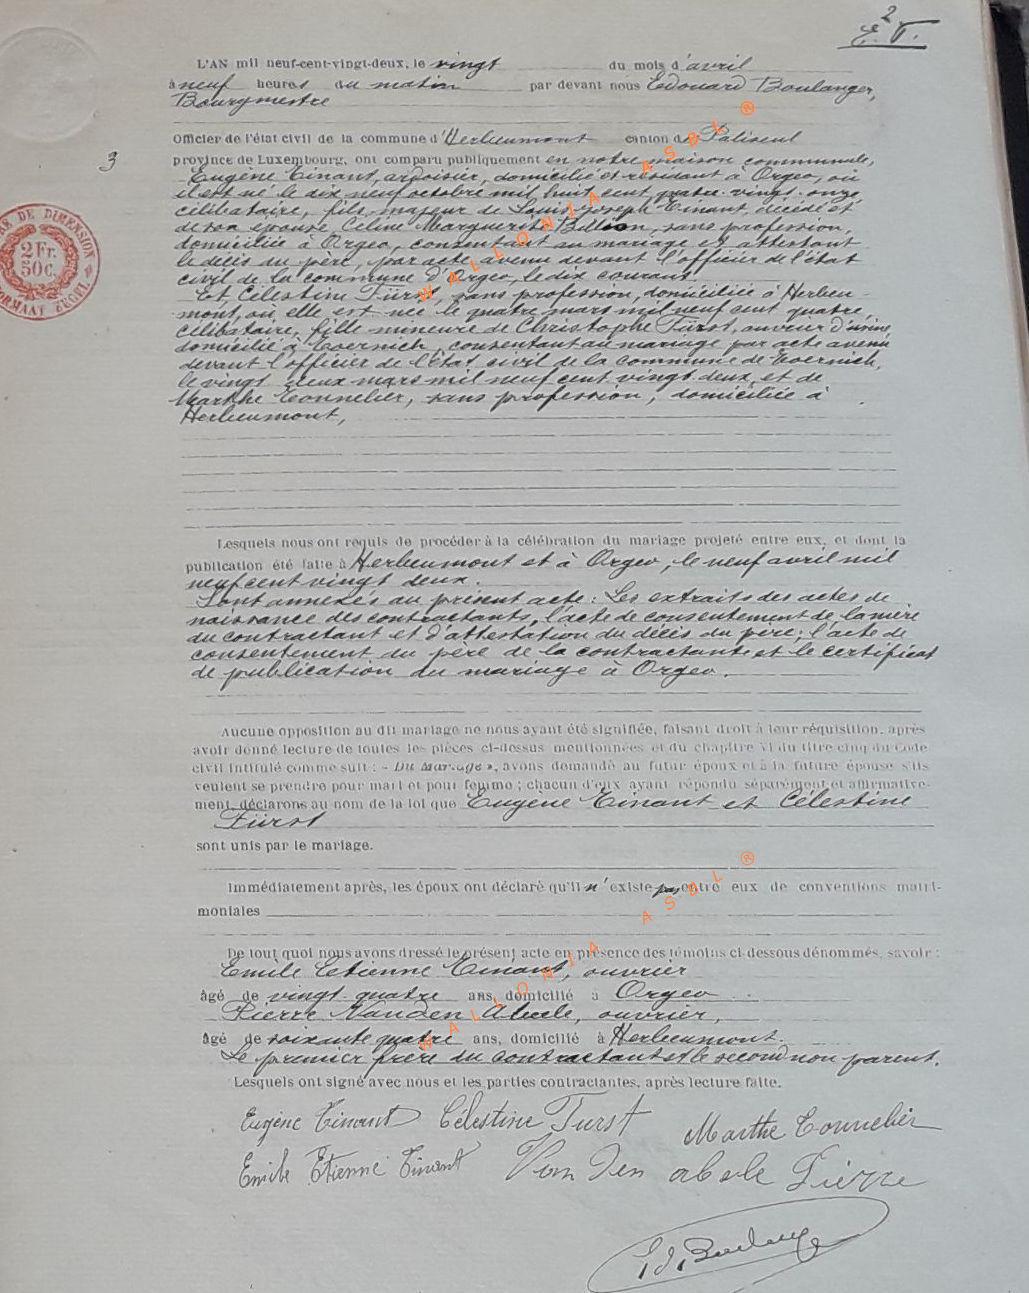 2
E. T.
L'AN mil neuf-cent-vingt-deux, le vingt du mois d'avril
à neuf heures du matin par devant nous Edouard Boulanger,
Bourgmestre
Officier de l'état civil de la commune d'Herbeumont canton de Paliseul
3
province de Luxembourg, ont comparu publiquement en notre maison communale,
Eugène Tinant, ardoisier, domicilié et résidant à Orgeo, où
il est né le dix neuf octobre mil huit cent quatre-vingt-onze
célibataire, fils majeur de Louis Joseph Tinant, décédé et
de son épouse, Céline Marguerite Billion, sans profession,
domiciliée à Orgeo, consentant au mariage et attestant
le décès du père, par acte avenu devant l'officier de l'état
civil de la commune d'Orgeo, le dix courant
Et Célestine Fürst, sans profession, domiciliée à Herbeu-
mont, où elle est née le quatre mars mil neuf cent quatre,
célibataire, fille mineure de Christophe Fürst, ouvrier d'usine,
domicilié à Evernich, consentant au mariage par acte avenu
devant l'officier de l'état civil de la commune de Evernich,
le vingt deux mars mil neuf cent vingt-deux, et de
Marthe Tonnelier, sans profession, domiciliée à
Herbeumont,
TIMBRE DE DIMENSION
2 Fr.
50c.
Lesquels nous ont requis de procéder à la célébration du mariage projeté entre eux, et dont la
publication été faite à Herbeumont et à Orgeo, le neuf avril mil
neuf cent vingt deux.
Sont annexés au présent acte : Les extraits des actes de
naissance des contractants, l'acte de consentement de la mère
du contractant et d'attestation du décès du père; l'acte de
consentement du père de la contractante et le certificat
de publication du mariage à Orgeo.
Aucune opposition au dit mariage ne nous ayant été signifiée, faisant droit à leur réquisition, après
avoir donné lecture de toutes les pièces ci-dessus mentionnées et du chapitre VI du titre cinq du Code
civil intitulé comme suit : « Du Mariage », avons demandé au futur époux et à la future épouse s'ils
veulent se prendre pour mari et pour femme ; chacun d'eux ayant répondu séparément et affirmative-
ment, déclarons au nom de la loi que Eugène Tinant et Célestine
Fürst
sont unis par le mariage.
Immédiatement après, les époux ont déclaré qu'il n'existe pas entre eux de conventions matri-
moniales
De tout quoi nous avons dressé le présent acte en présence des témoins ci-dessous dénommés, savoir :
Emile Etienne Tinant, ouvrier
âgé de vingt-quatre ans, domicilié à Orgeo
Pierre Vanden Abeele, ouvrier,
âgé de soixante quatre ans, domicilié à Herbeumont.
Le premier frère du contractant et le second non parent.
Lesquels ont signé avec nous et les parties contractantes, après lecture faite.
Eugène Tinant Célestine Furst Marthe Tonnelier
Emile Etienne Tinant Van Den abeele Pierre
Ed. Boulanger
WALLONIA ASBL ®
WALLONIA ASBL ®